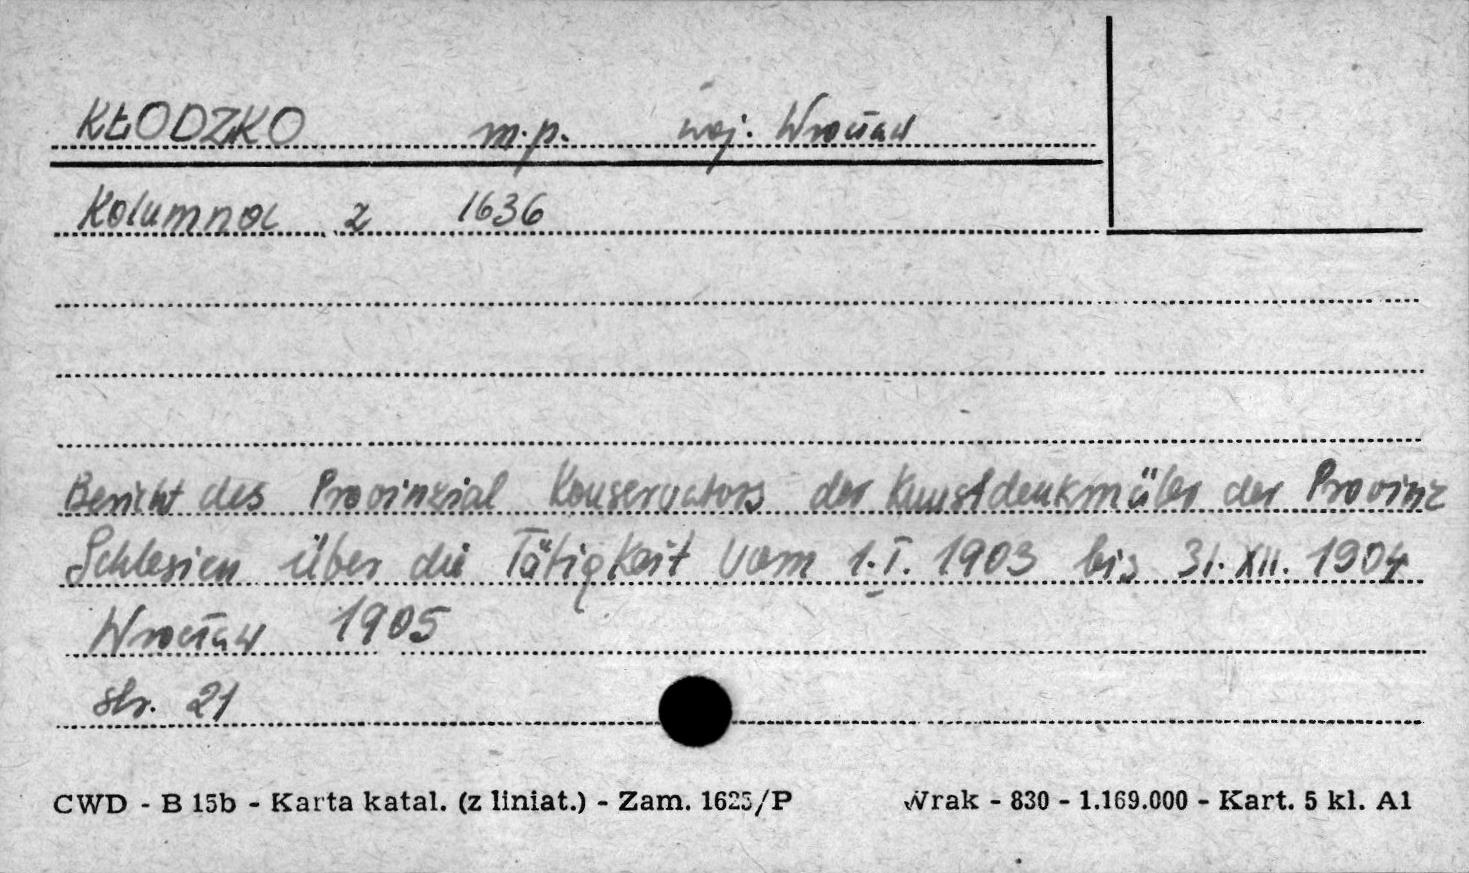 KŁODZKO m.p. woj. Wrocław
Kolumna z 1636
Bericht des Provinzial Konservators der Kunstdenkmäler der Provinz
Schlesien über die Tätigkeit vom 1.I. 1903 bis 31.XII. 1904
Wrocław 1905
str. 21
CWD - B 15b - Karta katal. (z liniat.) - Zam. 1625/P Wrak - 830 - 1.169.000 - Kart. 5 kl. A1